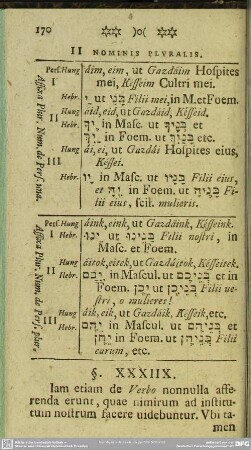 170
II NOMINIS PLURALIS.
Affixa Plur. Num. de Pers. una.
Pers. Hung. áim, eim, ut Gazdáim Hospites
I mei, Késseim Cultri mei.
Hebr. ַי ut בָּנַי Filii mei, in M. et Foem.
Hung. áid, eid, ut Gazdáid, Késseid.
II Hebr. ֶיךָ in Masc. ut בָּנֶיךָ et
ַיִךְ in Foem. ut בָּנַיִךְ etc.
Hung. ái, ei, ut Gazdái Hospites eius,
III Késsei.
Hebr. ָיו in Masc. ut בָּנָיו Filii eius,
et ֶיהָ in Foem. ut בָּנֶיהָ Fi-
lii eius, scil. mulieris.
Affixa Plur. Num. de Pers. plur.
Pers. Hung. áink, eink, ut Gazdáink, Késseink.
I Hebr. ֵינוּ ut בָּנֵינוּ Filii nostri, in
Masc. et Foem.
Hung. áitok, eitek, ut Gazdáitok, Késseitek.
II Hebr. ֵיכֶם in Mascul. ut בְּנֵיכֶם et
in Foem. ut בְּנֵיכֶן Filii ve-
stri, o mulieres!
Hung. áik, eik, ut Gazdáik, Késseik, etc.
III Hebr. ֵיהֶם in Mascul. ut בְּנֵיהֶם et
in Foem. ut בְּנֵיהֶן Filii
earum, etc.
§. XXXIIX.
Iam etiam de Verbo nonnulla affe-
renda erunt, quae nimirum ad institu-
tum nostrum facere uidebuntur. Vbi ta-
men